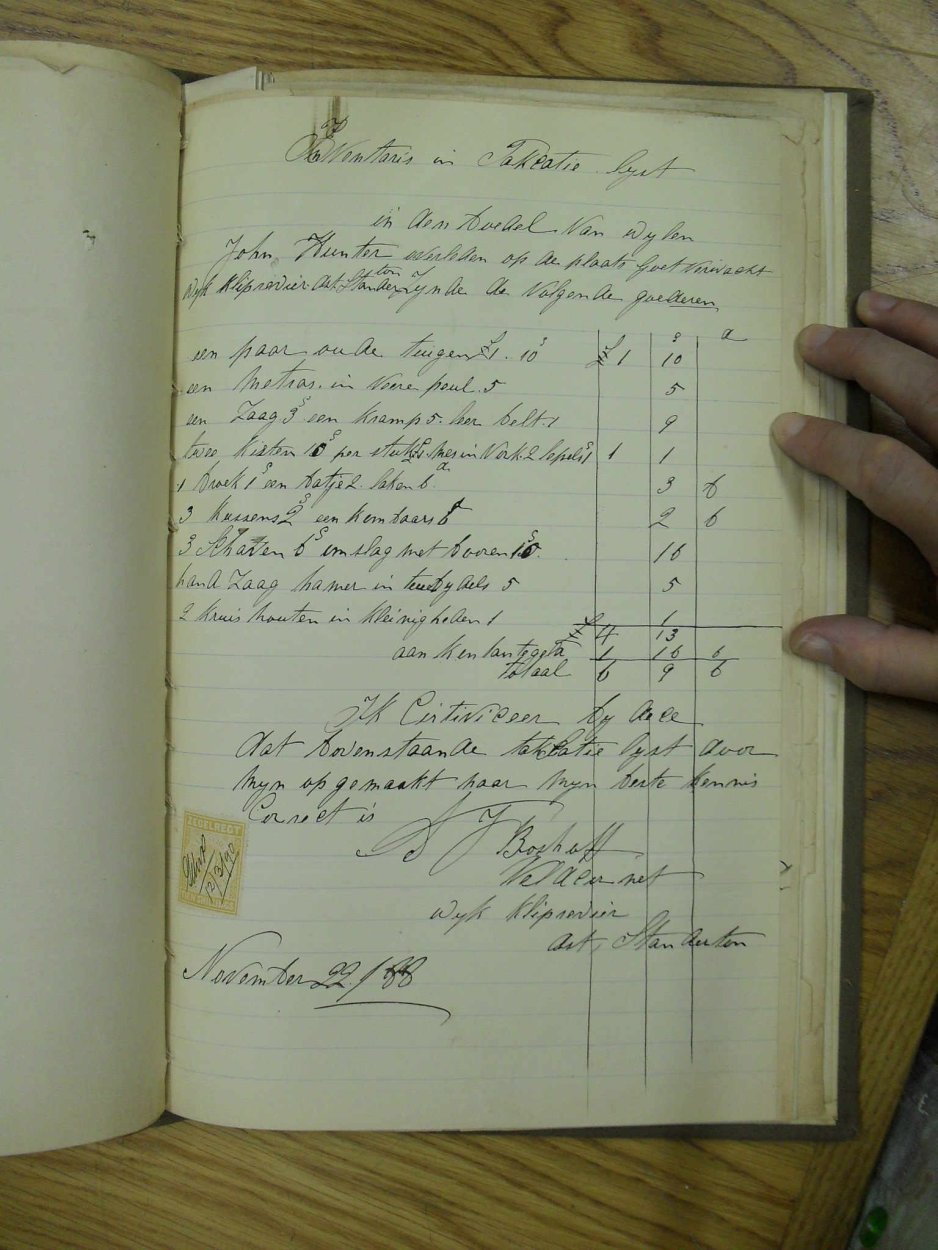 Inventaris in Taxatie lyst
in den boedel van wylen
John Hunter overleden op de plaats Goet Verwacht
wyk Kliprevier dist Standerton zynde de volgende goederen
£ s d
een paar oude tuigen £1. 10s £ 1 10
een Matras in veere peul. 5 5
een Zaag 3s een kramp 5. leer belt. 1 9
twee kisten 10s per stuk mes in vork 2 lepels 1 1 1
1 broek 1s een batje 2. laken 6d 3 6
3 kussens 2s een kombaars 6d 2 6
3 Schaven 6s omslag met booren 10s 16
hand Zaag hamer in bydels 5 5
2 kruis houten in kleinigheden 1 1
£ 4 13
aan kontantegeld 1 16 6
totaal 6 9 6
Ik Certiviceer by deze
dat bovenstaande taxatie lyst door
myn opgemaakt naar myn beste kennis
Correct is
Boshoff
Veldcornet
wyk Kliprevier
dist, Standerton
ZEGELRECHT
12/3/90
November 22 / 88